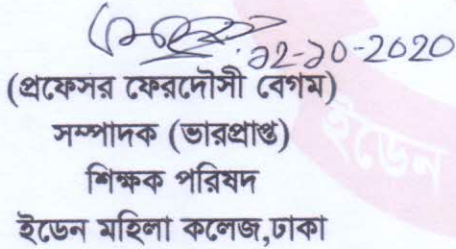 ১২-১০-2020
(প্রফেসর ফেরদৌসী বেগম)
সম্পাদক (ভারপ্রাপ্ত)
শিক্ষক পরিষদ
ইডেন মহিলা কলেজ,ঢাকা
ইডেন